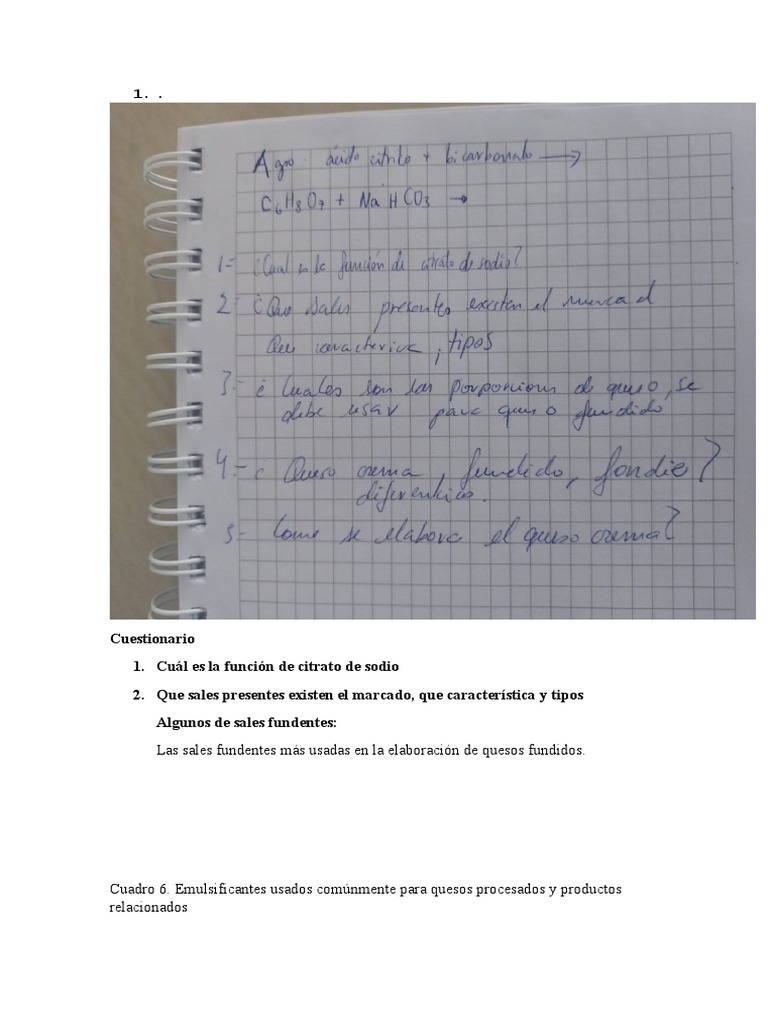 1. .
Agro: ácido citrico + bicarbonato ⟶
C6H8O7 + NaHCO3 →
1- ¿Cual es la función de citrato de sodio?
2- ¿Que sales presentes existen el mercad
Que caracteriza, tipos
3.- ¿Cuales son las porporciones de queso, se
debe usar para queso fundido
4.- ¿Queso crema, fundido, fondie?
diferencias.
5- Como se elabora el queso crema?
Cuestionario
1. Cuál es la función de citrato de sodio
2. Que sales presentes existen el marcado, que característica y tipos
Algunos de sales fundentes:
Las sales fundentes más usadas en la elaboración de quesos fundidos.
Cuadro 6. Emulsificantes usados comúnmente para quesos procesados y productos
relacionados